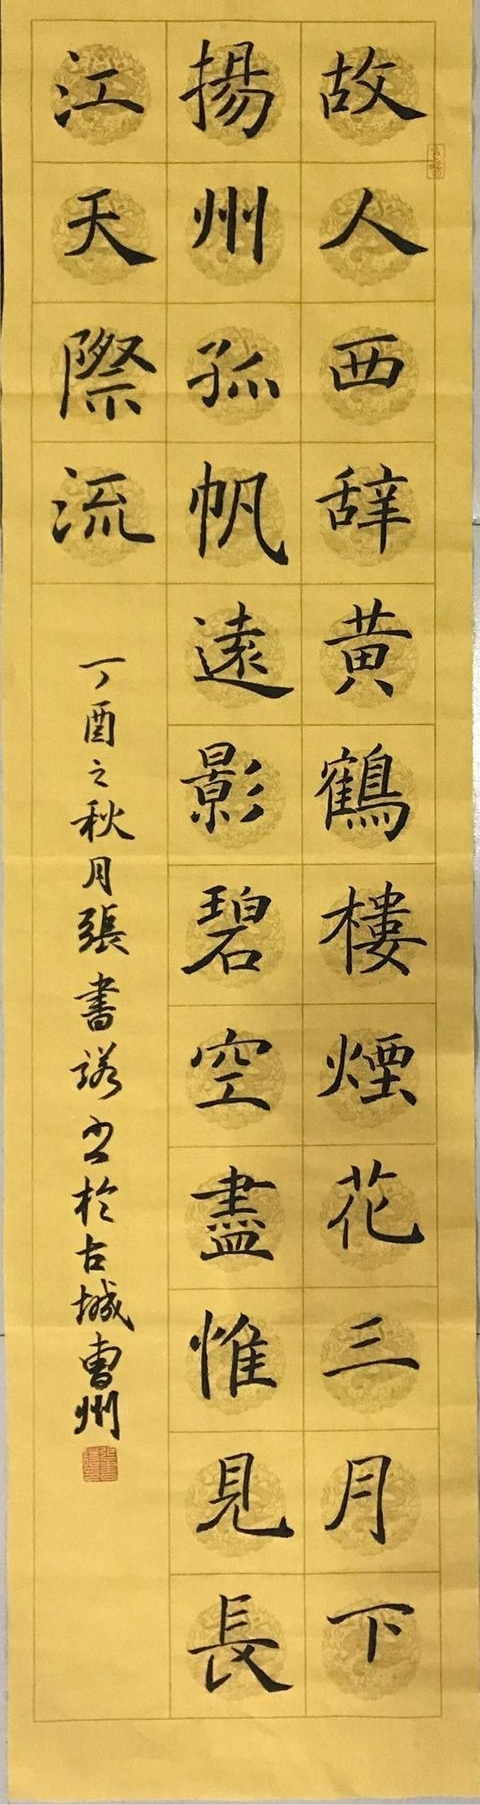 故人西辞黄鶴樓煙花三月下
揚州孤帆遠影碧空盡惟見長
江天際流
丁酉之秋月張書諾书於古城曹州